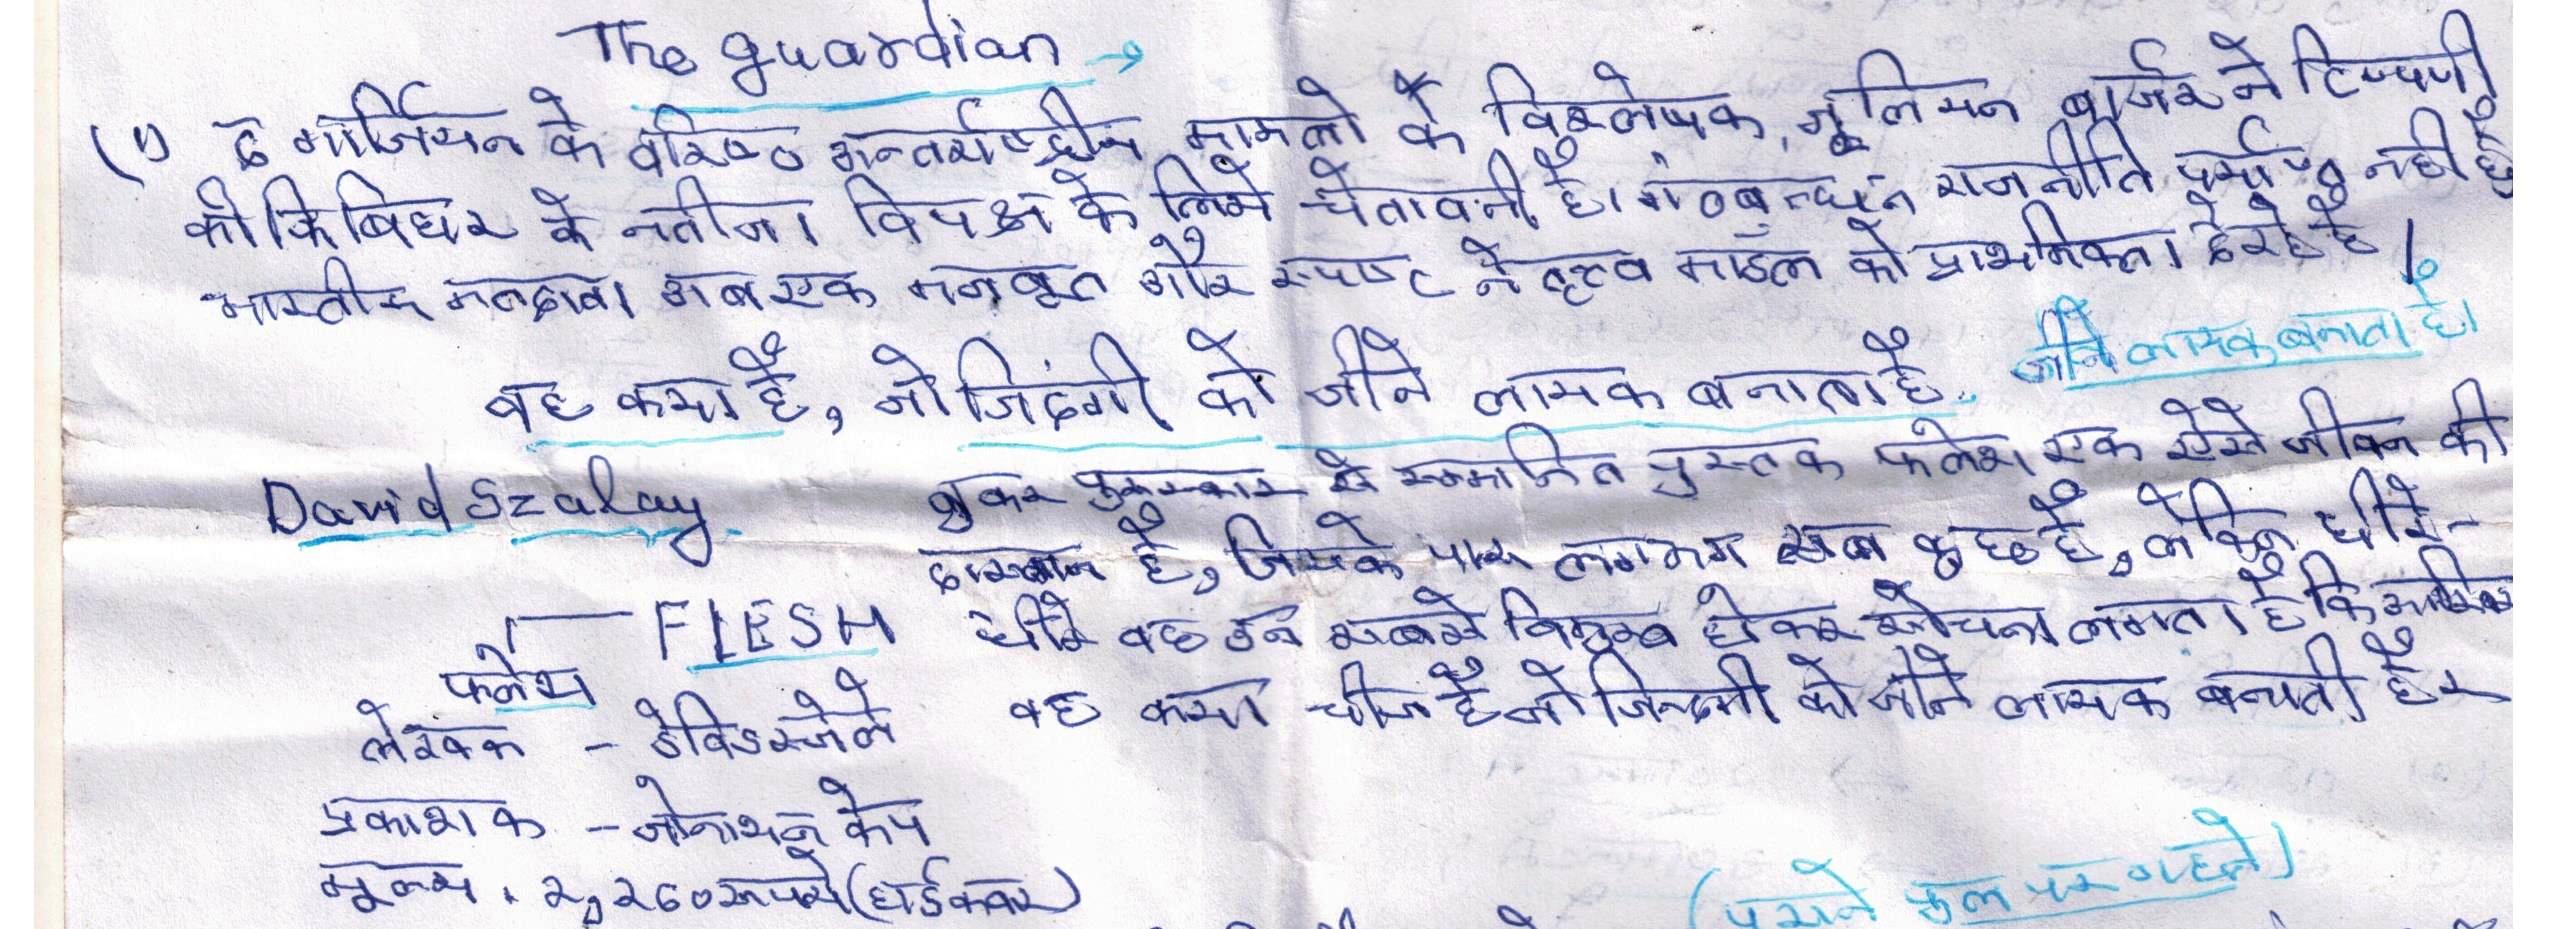 The guardian →
(1) द गार्जियन के वरिष्ठ अन्तर्राष्ट्रीय मामलो के विश्लेषक, जूलियन बार्जर ने टिप्पणी
की कि बिहार के नतीजा विपक्ष के लिये चेतावनी है। गंठबन्धन राजनीति पर्याप्त नहीं है
भारतीय मतदाता अब एक मजबूत और स्पष्ट नेतृत्व मॉडल को प्राथमिकता दे रहे है।
जीने लायक बनाता है।
वह क्या है, जो जिंदगी को जीने लायक बनाता है..
David Szalay
बुकर पुरुस्कार से सम्मानित पुस्तक फ्लेश एक ऐसे जीवन की
दास्तान है, जिसके पास लगभग सब कुछ है, लेकिन धीरे-
FLESH
धीरे वह उन सबसे विमुख होकर सोचना लगता है कि आखिर
फ्लेश
वह क्या चीज है जो जिन्दगी को जीने लायक बनाती है?
लेखक - डेविड स्जेले
प्रकाशक - जोनाथन केप
मूल्य . 2,260 रूपये (हार्डकवर)
(पुराने कुल पर गहने)